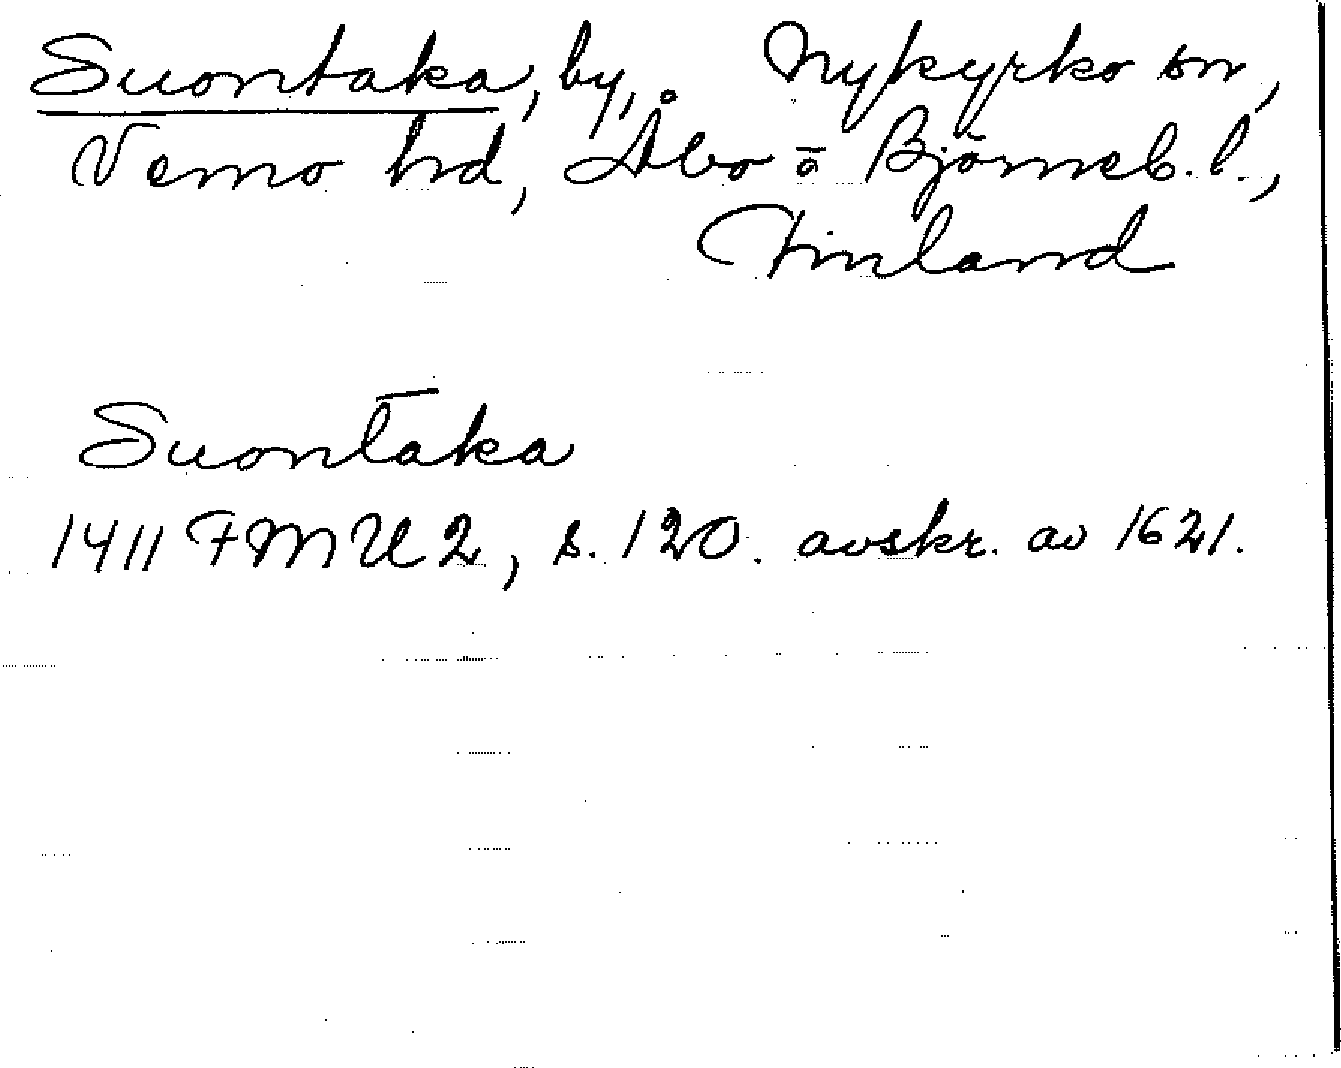 Suontaka, by, Nykyrko sn,
Vemo hd, Åbo o Björneb. l.,
Finland
Suontaka
1411 FMU 2, s. 120. avskr. av 1621.